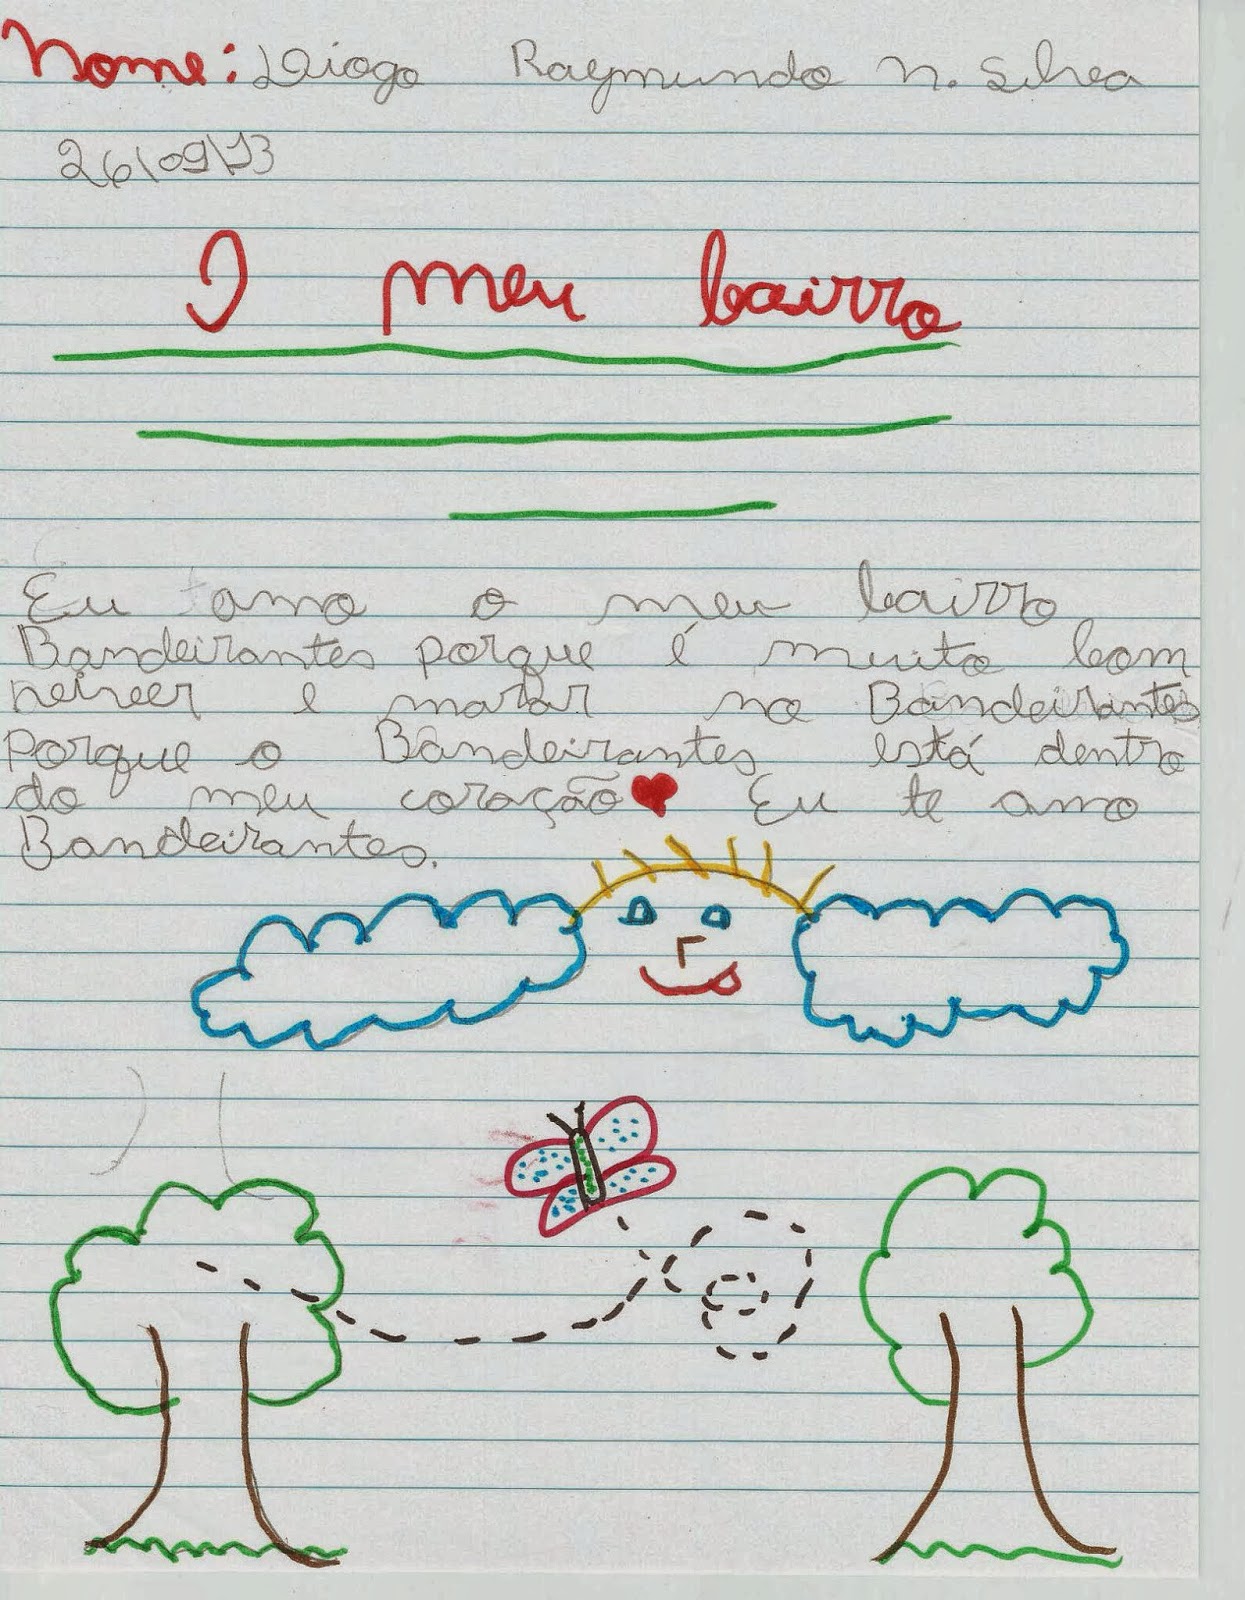 Nome: Diogo Raymundo N. Silva
26\09\13
O meu bairro
Eu amo o meu bairro
Bandeirantes porque é muito bom
viver e morar no Bandeirantes
porque o Bandeirantes está dentro
do meu coração Eu te amo
Bandeirantes.